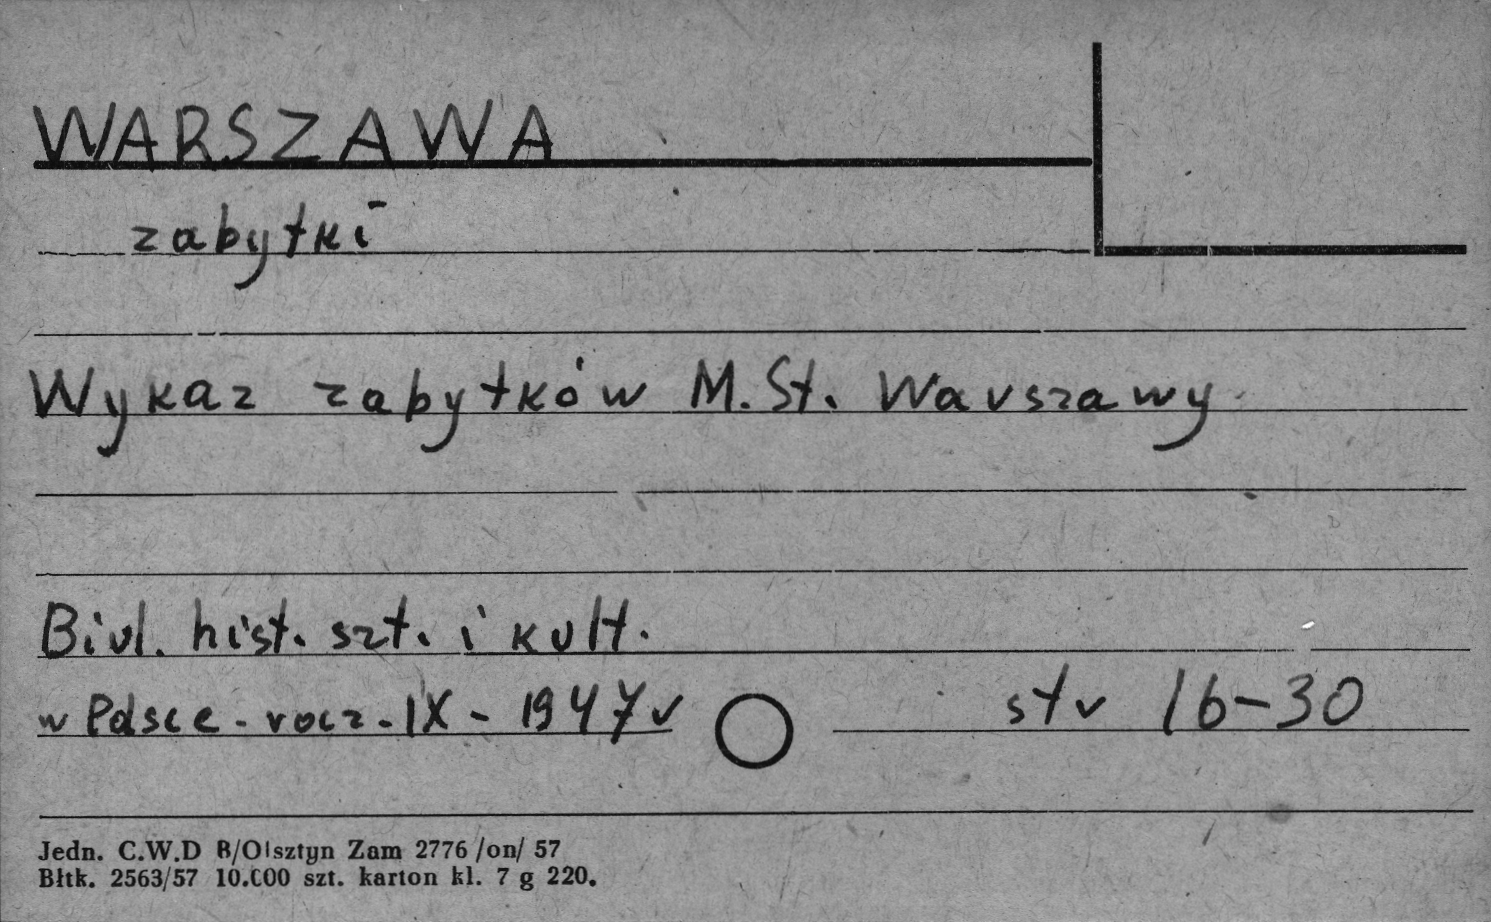 WARSZAWA
zabytki
Wykaz zabytków M. St. Warszawy
Biul. hist. szt. i kult.
w Polsce - rocz - IX - 1947 r str 16-30
Jedn. C.W.D B/Olsztyn Zam 2776 /on/ 57
Błtk. 2563/57 10.000 szt. karton kl. 7 g 220.